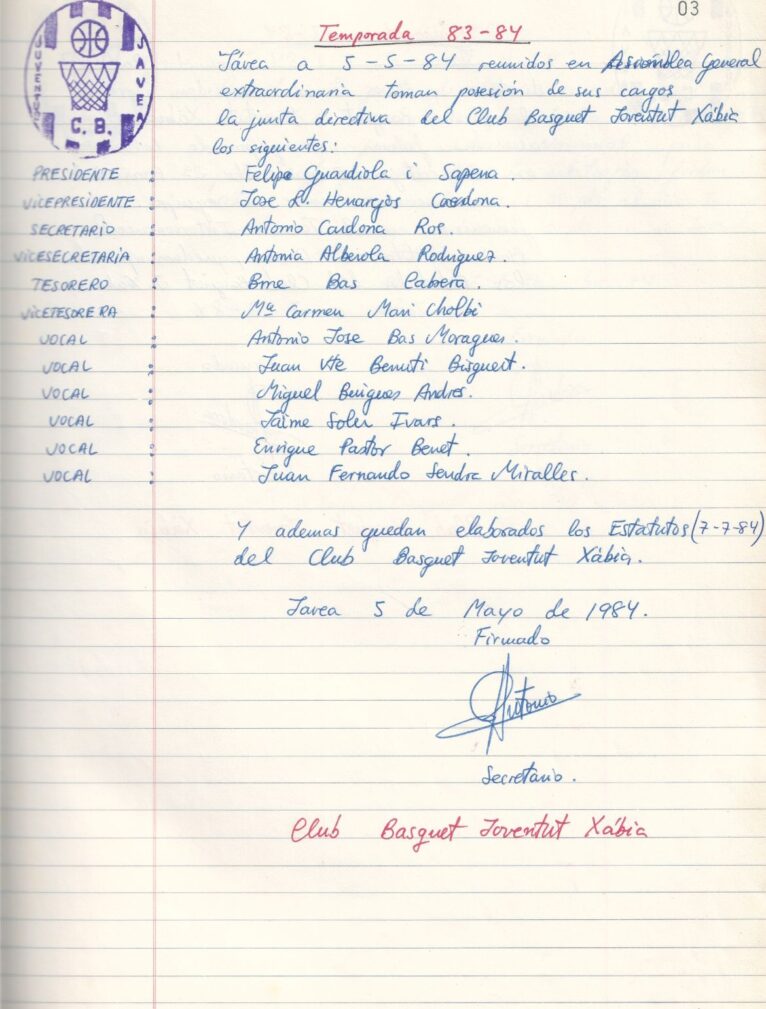 03
Temporada 83-84
JUVENTUS JAVEA
C. B.
Jávea a 5-5-84 reunidos en Assamblea General
extraordinaria toman posesión de sus cargos
la junta directiva del Club Basquet Joventut Xàbia
los siguientes:
PRESIDENTE : Felipe Guardiola i Sapena.
VICEPRESIDENTE : Jose L. Henarejos Cardona.
SECRETARIO : Antonio Cardona Ros.
VICESECRETARIA : Antonia Alberola Rodriguez.
TESORERO : Bme Bas Cabrera.
VICETESORERA : Mª Carmen Mari Cholbi
VOCAL : Antonio Jose Bas Moragues.
VOCAL : Juan Vte Bisquert.
VOCAL : Miguel Buigues Andres.
VOCAL : Jaime Soler Ivars.
VOCAL : Enrique Pastor Benet.
VOCAL : Juan Fernando Sendra Miralles.
Y ademas quedan elaborados los Estatutos (7-7-84)
del Club Basquet Joventut Xàbia.
Javea 5 de Mayo de 1984.
Firmado
Antonio
Secretario.
Club Basquet Joventut Xàbia